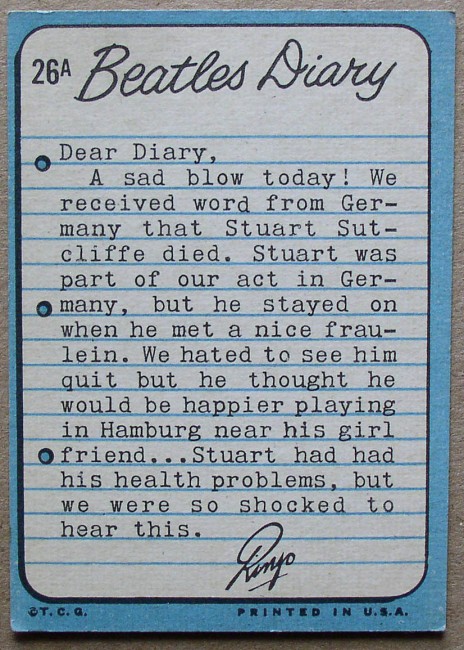 26A Beatles Diary
Dear Diary,
A sad blow today! We
received word from Ger-
many that Stuart Sut-
cliffe died. Stuart was
part of our act in Ger-
many, but he stayed on
when he met a nice frau-
lein. We hated to see him
quit but he thought he
would be happier playing
in Hamburg near his girl
friend...Stuart had had
his health problems, but
we were so shocked to
hear this.
Ringo
©T.C.G. PRINTED IN U.S.A.